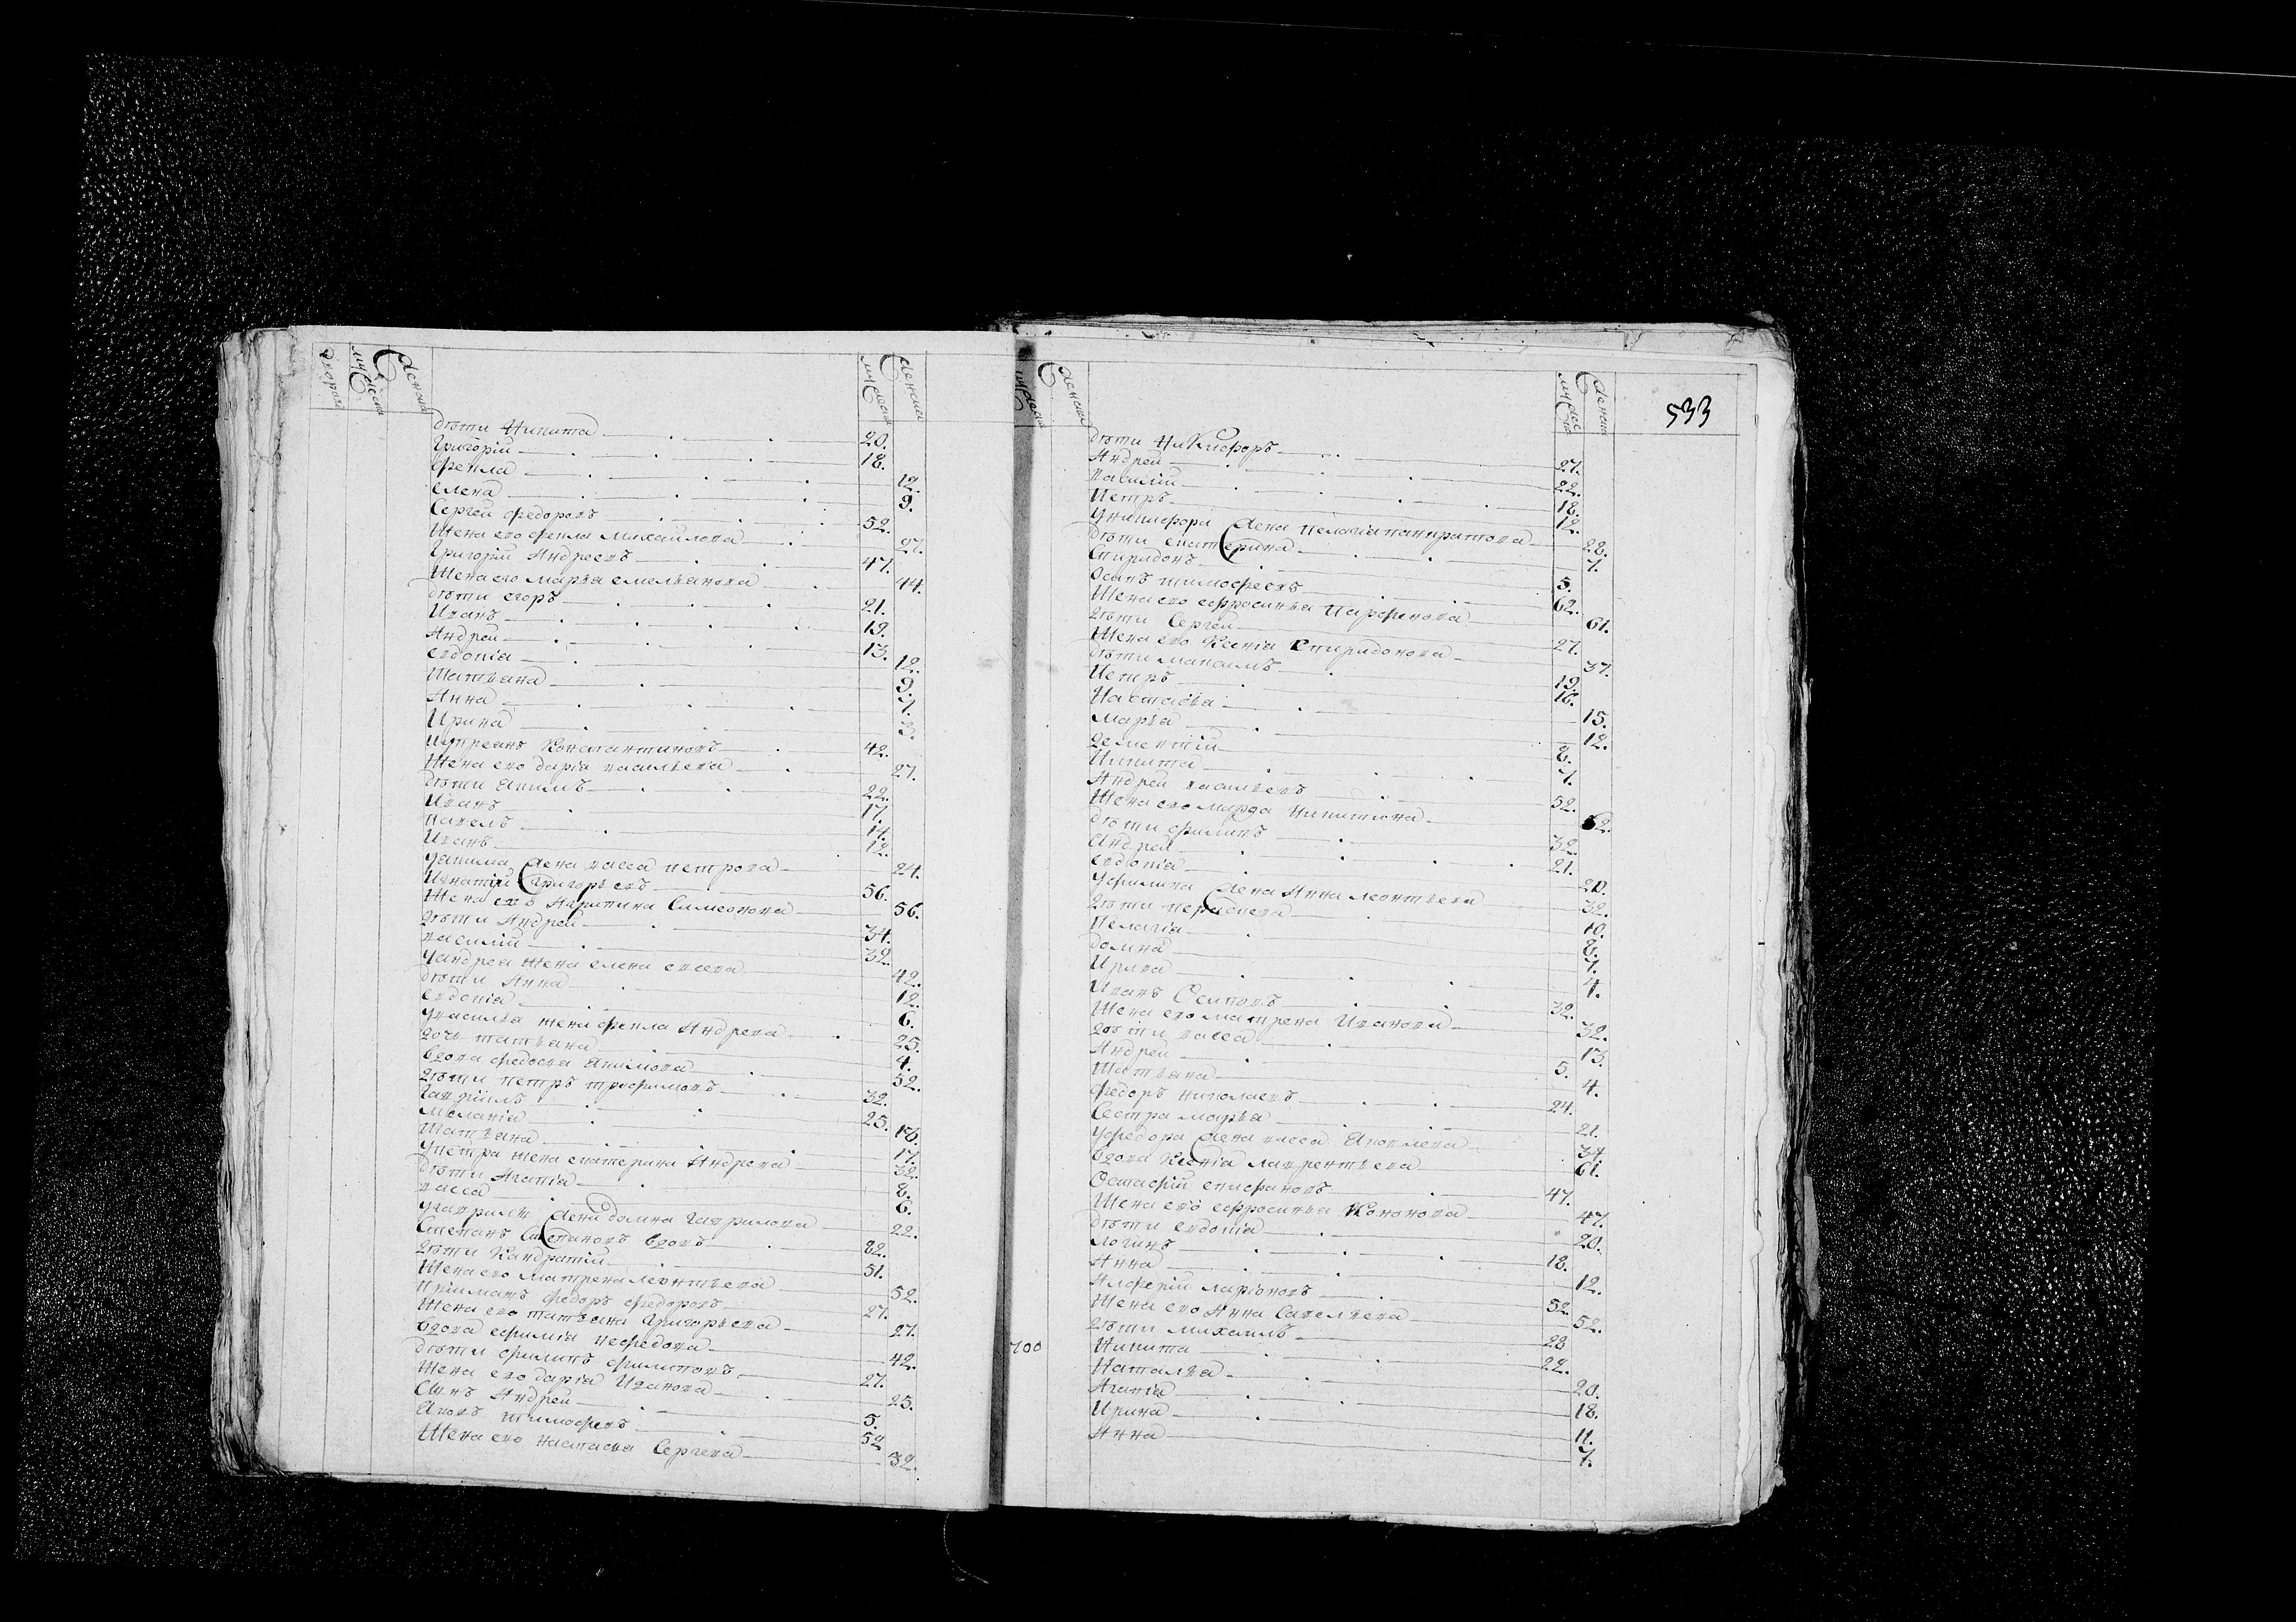 дворов мужеска женска мужеска женска
дѣти Никита 20.
Григорій 18.
Фекла 12.
Елена 9.
Сергей Федоровъ 52.
Жена его Фекла Михайлова 27.
Григорій Андреевъ 47.
Жена его Марья Емельянова 44.
дѣти Егоръ 21.
Иванъ 19.
Андрей 13.
Евдокіа 12.
Татьяна 9.
Анна 7.
Ирина 3.
Купреянъ Константиновъ 42.
Жена его Дарія Васильева 27.
дѣти Якимъ 22.
Иванъ 17.
Павелъ 14.
Иванъ 12.
У Якима жена Васса Петрова 24.
Игнатій Григорьевъ 56.
Жена его Акулина Симеонова 56.
дѣти Андрей 34.
Василій 32.
У Андрея жена Елена Евсева 42.
дѣти Анна 12.
Евдокіа 6.
У Василья жена Фекла Андреева 25.
дочь Татьяна 4.
вдова Федосья Якимова 52.
дѣти Петръ Трофимовъ 32.
Гавріилъ 25.
Меланіа 18.
Татьяна 17.
У Петра жена Екатерина Андреева 32.
дѣти Агапіа 8.
Васса 6.
У Гаврилы жена Домна Гаврилова 22.
Степанъ Степановъ вдовъ 82.
дѣти Кандратій 51.
Жена его Матрена Леонтьева 52.
Пріимакъ Федоръ Федоровъ 27.
Жена его Татьяна Григорьева 27.
вдова Ефиміа Нефедова 42.
дѣти Филипъ Филиповъ 27.
Жена его Даріа Иванова 25.
Сынъ Андрей 5.
Яковъ Тимофеевъ 52
Жена его Настасья Сергеева 32.
мужеска женска мужеска женска
533
дѣти Никифоръ 27.
Андрей 22.
Василій 18.
Петръ 12.
У Никифора жена Пелагіа Панкратова 28.
дѣти Екатерина 7.
Спиридонъ 5.
Осипъ Тимофеевъ 62.
Жена его Ефросинья Парфенова 61.
дѣти Сергей 27.
Жена его Ксеніа Спиридонова 37.
дѣти Максимъ 19.
Петръ 18.
Настасья 15.
Марья 12.
Дементій 8.
Никита 7.
Андрей Васильевъ 52.
Жена его Марфа Никитина 62.
дѣти Филипъ 32.
Андрей 21.
Евдокіа 20.
У Филипа жена Анна Леонтьева 32.
дѣти Парасковья 10.
Пелагіа 8.
Домна 7.
Ирина 4.
Иванъ Осиповъ 32.
Жена его Матрена Иванова 32.
дѣти Васса 13.
Андрей 5.
Татьяна 4.
Федоръ Николаевъ 24.
Сестра Марья 21.
У Федора жена Васса Яковлева 34.
вдова Ксеніа Лаврентьева 61.
Остафій Епифановъ 47.
Жена его Ефросинья Кононова 47.
дѣти Евдокіа 20.
Логинъ 18.
Анна 12.
Алферій Ларіоновъ 52.
Жена его Анна Савельева 52.
дѣти Михаилъ 28
700
Никита 22.
Наталья 20.
Агапіа 18.
Ирина 11.
Анна 7.